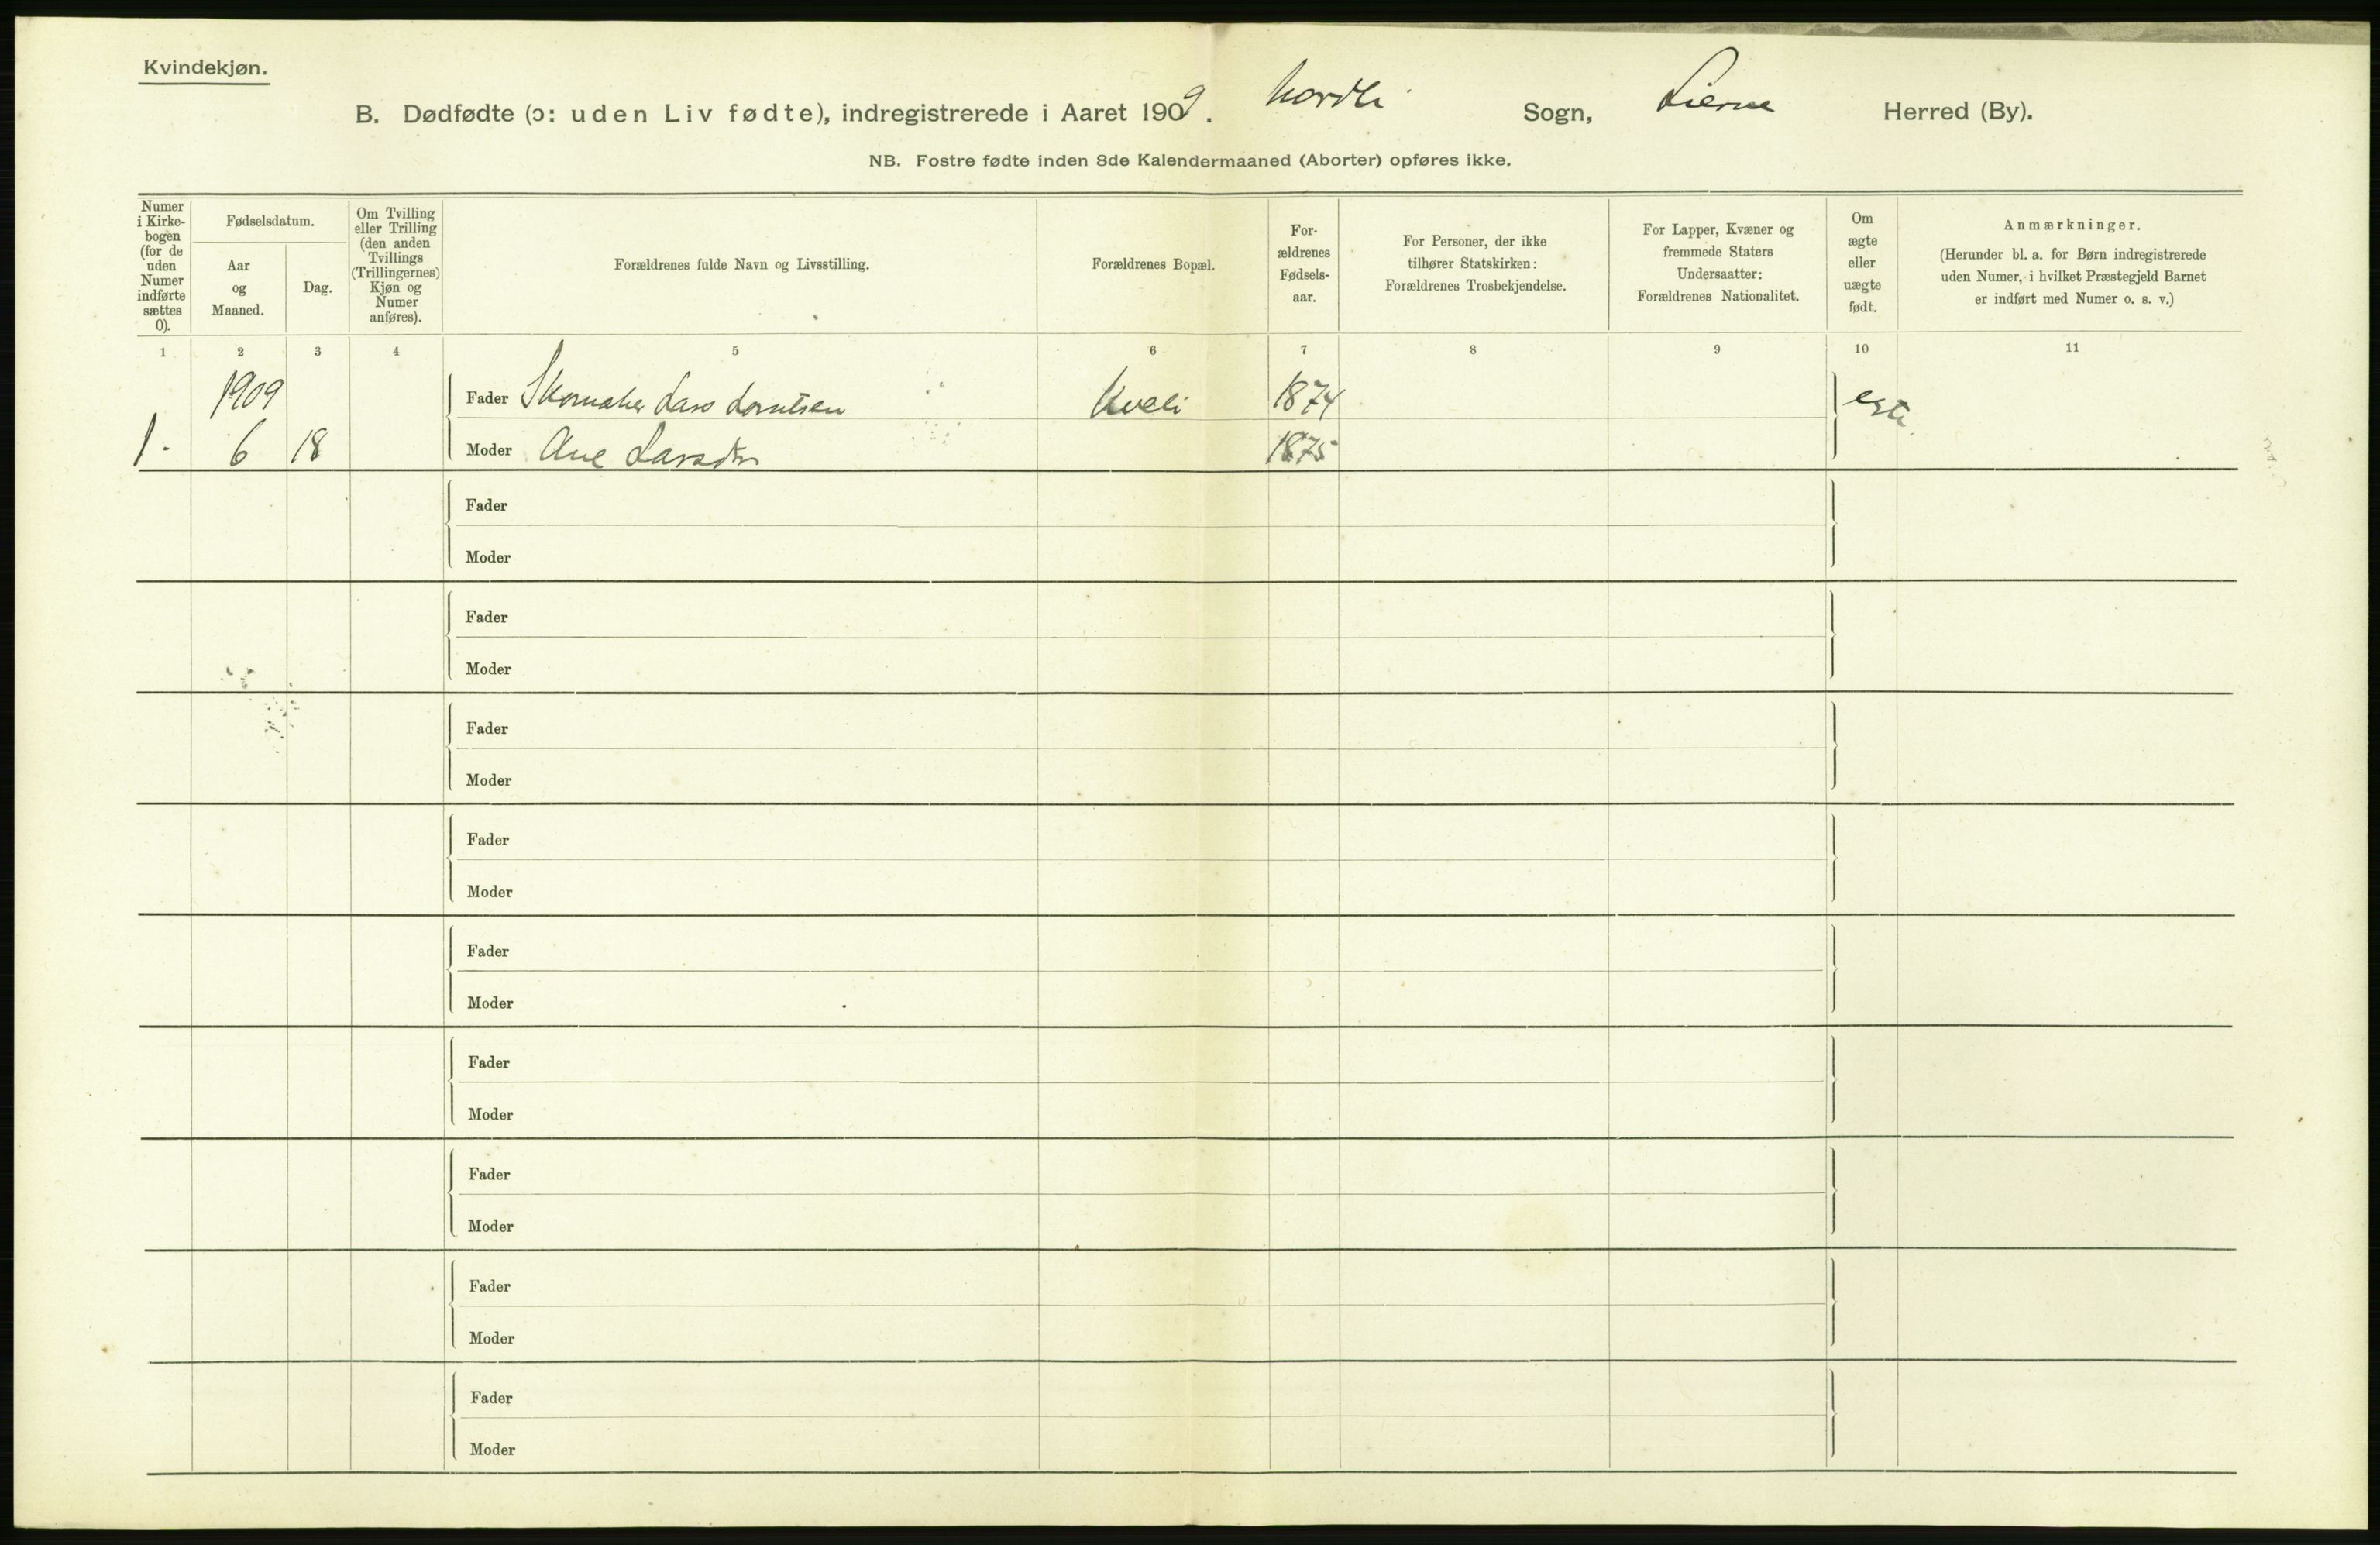 Kvindekjøn.
B. Dødfødte (ɔ: uden Liv fødte), indregistrerede i Aaret 1909. Nordli Sogn, Lierne Herred (By).
NB. Fostre fødte inden 8de Kalendermaaned (Aborter) opføres ikke.
Numer i Kirke-bogen (for de uden Numer indførte sættes 0).
Fødselsdatum.
Aar og Maaned.
Dag.
Om Tvilling eller Trilling (den anden Tvillings (Trillingernes) Kjøn og Numer anføres).
Forældrenes fulde Navn og Livsstilling.
Forældrenes Bopæl.
For-ældrenes Fødsels-aar.
For Personer, der ikke tilhører Statskirken: Forældrenes Trosbekjendelse.
For Lapper, Kvæner og fremmede Staters Undersaatter: Forældrenes Nationalitet.
Om ægte eller uægte født.
Anmærkninger.
(Herunder bl. a. for Børn indregistrerede uden Numer, i hvilket Præstegjeld Barnet er indført med Numer o. s. v.)
1 2 3 4 5 6 7 8 9 10 11
1909 Fader Skomaker Lars Lorntsen Kveli 1874 egte
1. 6 18 Moder Ane Larsdtr 1875
Fader
Moder
Fader
Moder
Fader
Moder
Fader
Moder
Fader
Moder
Fader
Moder
Fader
Moder
Fader
Moder
Fader
Moder